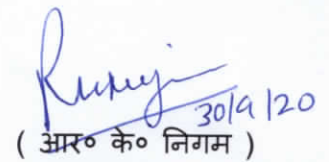 30/9/20
( आर० के० निगम )